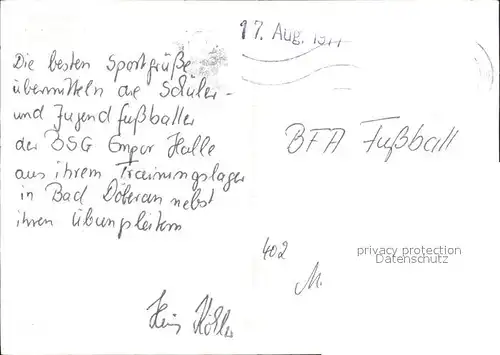 17. Aug. 1977
Die besten Sportgrüße
übermitteln die Schüler-
und Jugendfußballer
der BSG Empor Halle
aus ihrem Trainingslager
in Bad Doberan nebst
ihren Übungsleitern
BFA Fußball
402
privacy protection
Datenschutz
M.